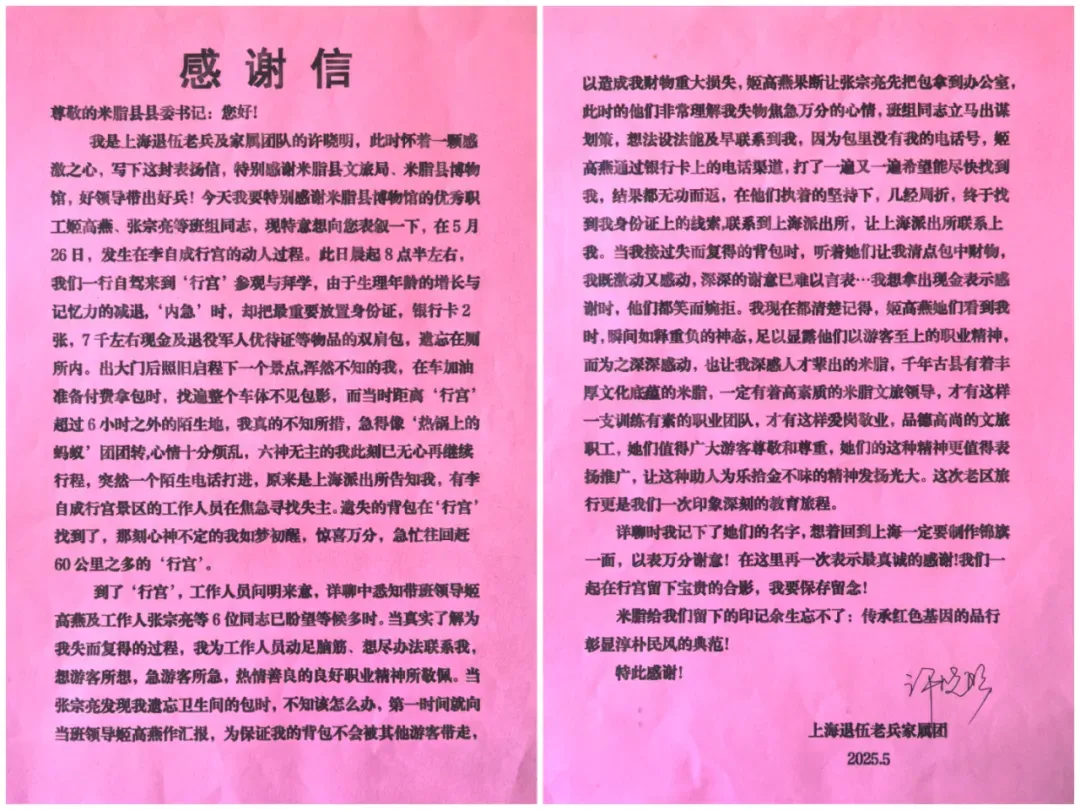 感谢信
尊敬的米脂县县委书记：您好！
我是上海退伍老兵及家属团队的许晓明，此时怀着一颗感
激之心，写下这封表扬信，特别感谢米脂县文旅局、米脂县博物
馆，好领导带出好兵！今天我要特别感谢米脂县博物馆的优秀职
工姬高燕、张宗亮等班组同志，现特意想向您表叙一下，在5月
26日，发生在李自成行宫的动人过程。此日晨起8点半左右，
我们一行自驾来到‘行宫’参观与拜学，由于生理年龄的增长与
记忆力的减退，‘内急’时，却把最重要放置身份证，银行卡2
张，7千左右现金及退役军人优待证等物品的双肩包，遗忘在厕
所内。出大门后照旧启程下一个景点,浑然不知的我，在车加油
准备付费拿包时，找遍整个车体不见包影，而当时距离‘行宫’
超过6小时之外的陌生地，我真的不知所措，急得像‘热锅上的
蚂蚁’团团转,心情十分烦乱，六神无主的我此刻已无心再继续
行程，突然一个陌生电话打进，原来是上海派出所告知我，有李
自成行宫景区的工作人员在焦急寻找失主。遗失的背包在‘行宫’
找到了，那刻心神不定的我如梦初醒，惊喜万分，急忙往回赶
60公里之多的‘行宫’。
到了‘行宫’，工作人员问明来意，详聊中悉知带班领导姬
高燕及工作人张宗亮等6位同志已盼望等候多时。当真实了解为
我失而复得的过程，我为工作人员动足脑筋、想尽办法联系我，
想游客所想，急游客所急，热情善良的良好职业精神所敬佩。当
张宗亮发现我遗忘卫生间的包时，不知该怎么办，第一时间就向
当班领导姬高燕作汇报，为保证我的背包不会被其他游客带走，
以造成我财物重大损失，姬高燕果断让张宗亮先把包拿到办公室，
此时的他们非常理解我失物焦急万分的心情，班组同志立马出谋
划策，想法设法能及早联系到我，因为包里没有我的电话号，姬
高燕通过银行卡上的电话渠道，打了一遍又一遍希望能尽快找到
我，结果都无动而返，在他们执着的坚持下，几经周折，终于找
到我身份证上的线索,联系到上海派出所，让上海派出所联系上
我。当我接过失而复得的背包时，听着她们让我清点包中财物，
我既激动又感动，深深的谢意已难以言表…我想拿出现金表示感
谢时，他们都笑而婉拒。我现在都清楚记得，姬高燕她们看到我
时，瞬间如释重负的神态，足以显露他们以游客至上的职业精神，
而为之深深感动，也让我深感人才辈出的米脂，千年古县有着丰
厚文化底蕴的米脂，一定有着高素质的米脂文旅领导，才有这样
一支训练有素的职业团队，才有这样爱岗敬业，品德高尚的文旅
职工，她们值得广大游客尊敬和尊重，她们的这种精神更值得表
扬推广，让这种助人为乐拾金不昧的精神发扬光大。这次老区旅
行更是我们一次印象深刻的教育旅程。
详聊时我记下了她们的名字，想着回到上海一定要制作锦旗
一面，以表万分谢意！在这里再一次表示最真诚的感谢!我们一
起在行宫留下宝贵的合影，我要保存留念！
米脂给我们留下的印记余生忘不了：传承红色基因的品行
彰显淳朴民风的典范！
特此感谢！
许晓明
上海退伍老兵家属团
2025.5